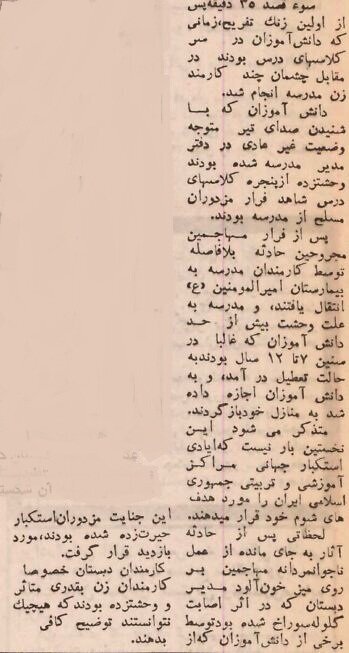 سوء قصد ۳۵ دقیقه‌پس
از اولین زنگ تفریح،زمانی
که دانش‌آموزان در سر
کلاسهای درس بودند در
مقابل چشمان چند کارمند
زن مدرسه انجام شد.
دانش آموزان که بــا
شنیدن صدای تیر متوجه
وضعیت غیر عادی در دفتر
مدیر مدرسه شده بودند
وحشتزده ازپنجره کلاسهای
درس شاهد فرار مزدوران
مسلح از مدرسه بودند.
پس از فرار مهاجمین
مجروحین حادثه بلافاصله
توسط کارمندان مدرسه به
بیمارستان امیرالمومنین (ع)
انتقال یافتند، و مدرسه به
علت وحشت بیش از حد
دانش آموزان که غالبا در
سنین ۷تا ۱۲ سال بودندبه
حالت تعطیل در آمد، و به
دانش آموزان اجازه داده
شد به منازل خودبازگردند.
متذکر می شود ایـن
نخستین بار نیست که‌ایادی
استکبار جهانی مراکـز
آموزشی و تربیتی جمهوری
اسلامی ایران را مورد هدف
های شوم خود قرار میدهند.
لحظاتی پس از حادثه
آثار به جای مانده از عمل
ناجوانمردانه مهاجمین بـر
روی میز خون‌آلود مدیـر
دبستان که در اثر اصابت
گلوله‌سوراخ شده بودتوسط
برخی از دانش‌آموزان که‌از
این جنایت مزدوران‌استکبار
حیرت‌زده شده بودند،مورد
بازدید قرار گرفت.
کارمندان دبستان خصوصا
کارمندان زن بقدری متاثر
و وحشتزده بودندکه هیچیک
نتوانستند توضیح کافی
بدهند.